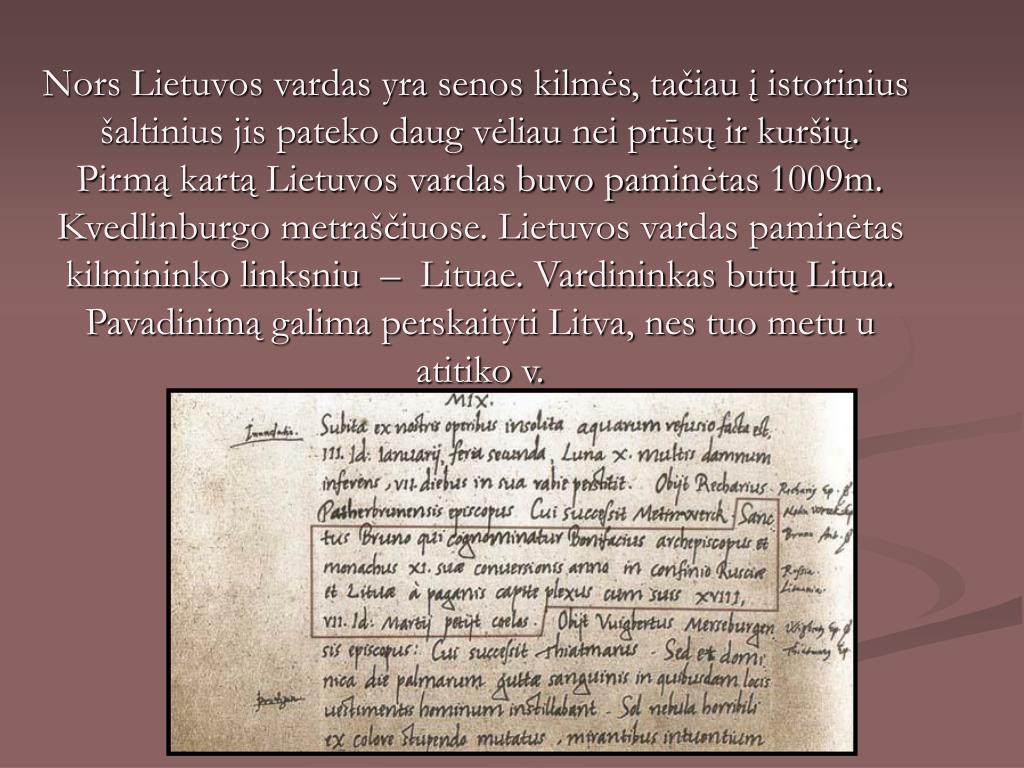 Nors Lietuvos vardas yra senos kilmės, tačiau į istorinius
šaltinius jis pateko daug vėliau nei prūsų ir kuršių.
Pirmą kartą Lietuvos vardas buvo paminėtas 1009m.
Kvedlinburgo metraščiuose. Lietuvos vardas paminėtas
kilmininko linksniu – Lituae. Vardininkas butų Litua.
Pavadinimą galima perskaityti Litva, nes tuo metu u
atitiko v.
MIX.
Subita ex nostris operibus insolita aquarum refusio facta est,
III. Id: Ianuarij, feria secunda, Luna X. multis damnum
inferens, VII. diebus in sua rabie perstitit. Obijt Recharius
Patherbrunensis episcopus. Cui successit Sanc
tus Bruno qui cognominatur Bonifacius archepiscopus et
monachus XI. suæ conuersionis anno in confinio Rusciæ
et Lituæ à paganis capite plexus cum suis XVIII,
VII. Id: Martij petijt coelos. Obijt Vuigbertus Merseburgen
sis episcopus: Cui successit Thiatmarus. Sed et domi
nica die palmarum guttæ sanguinis in quibusdam locis
uestimentis hominum instillabant. Sol nebula horribili
ex colore stupendo mutatus, mirantibus intuentium